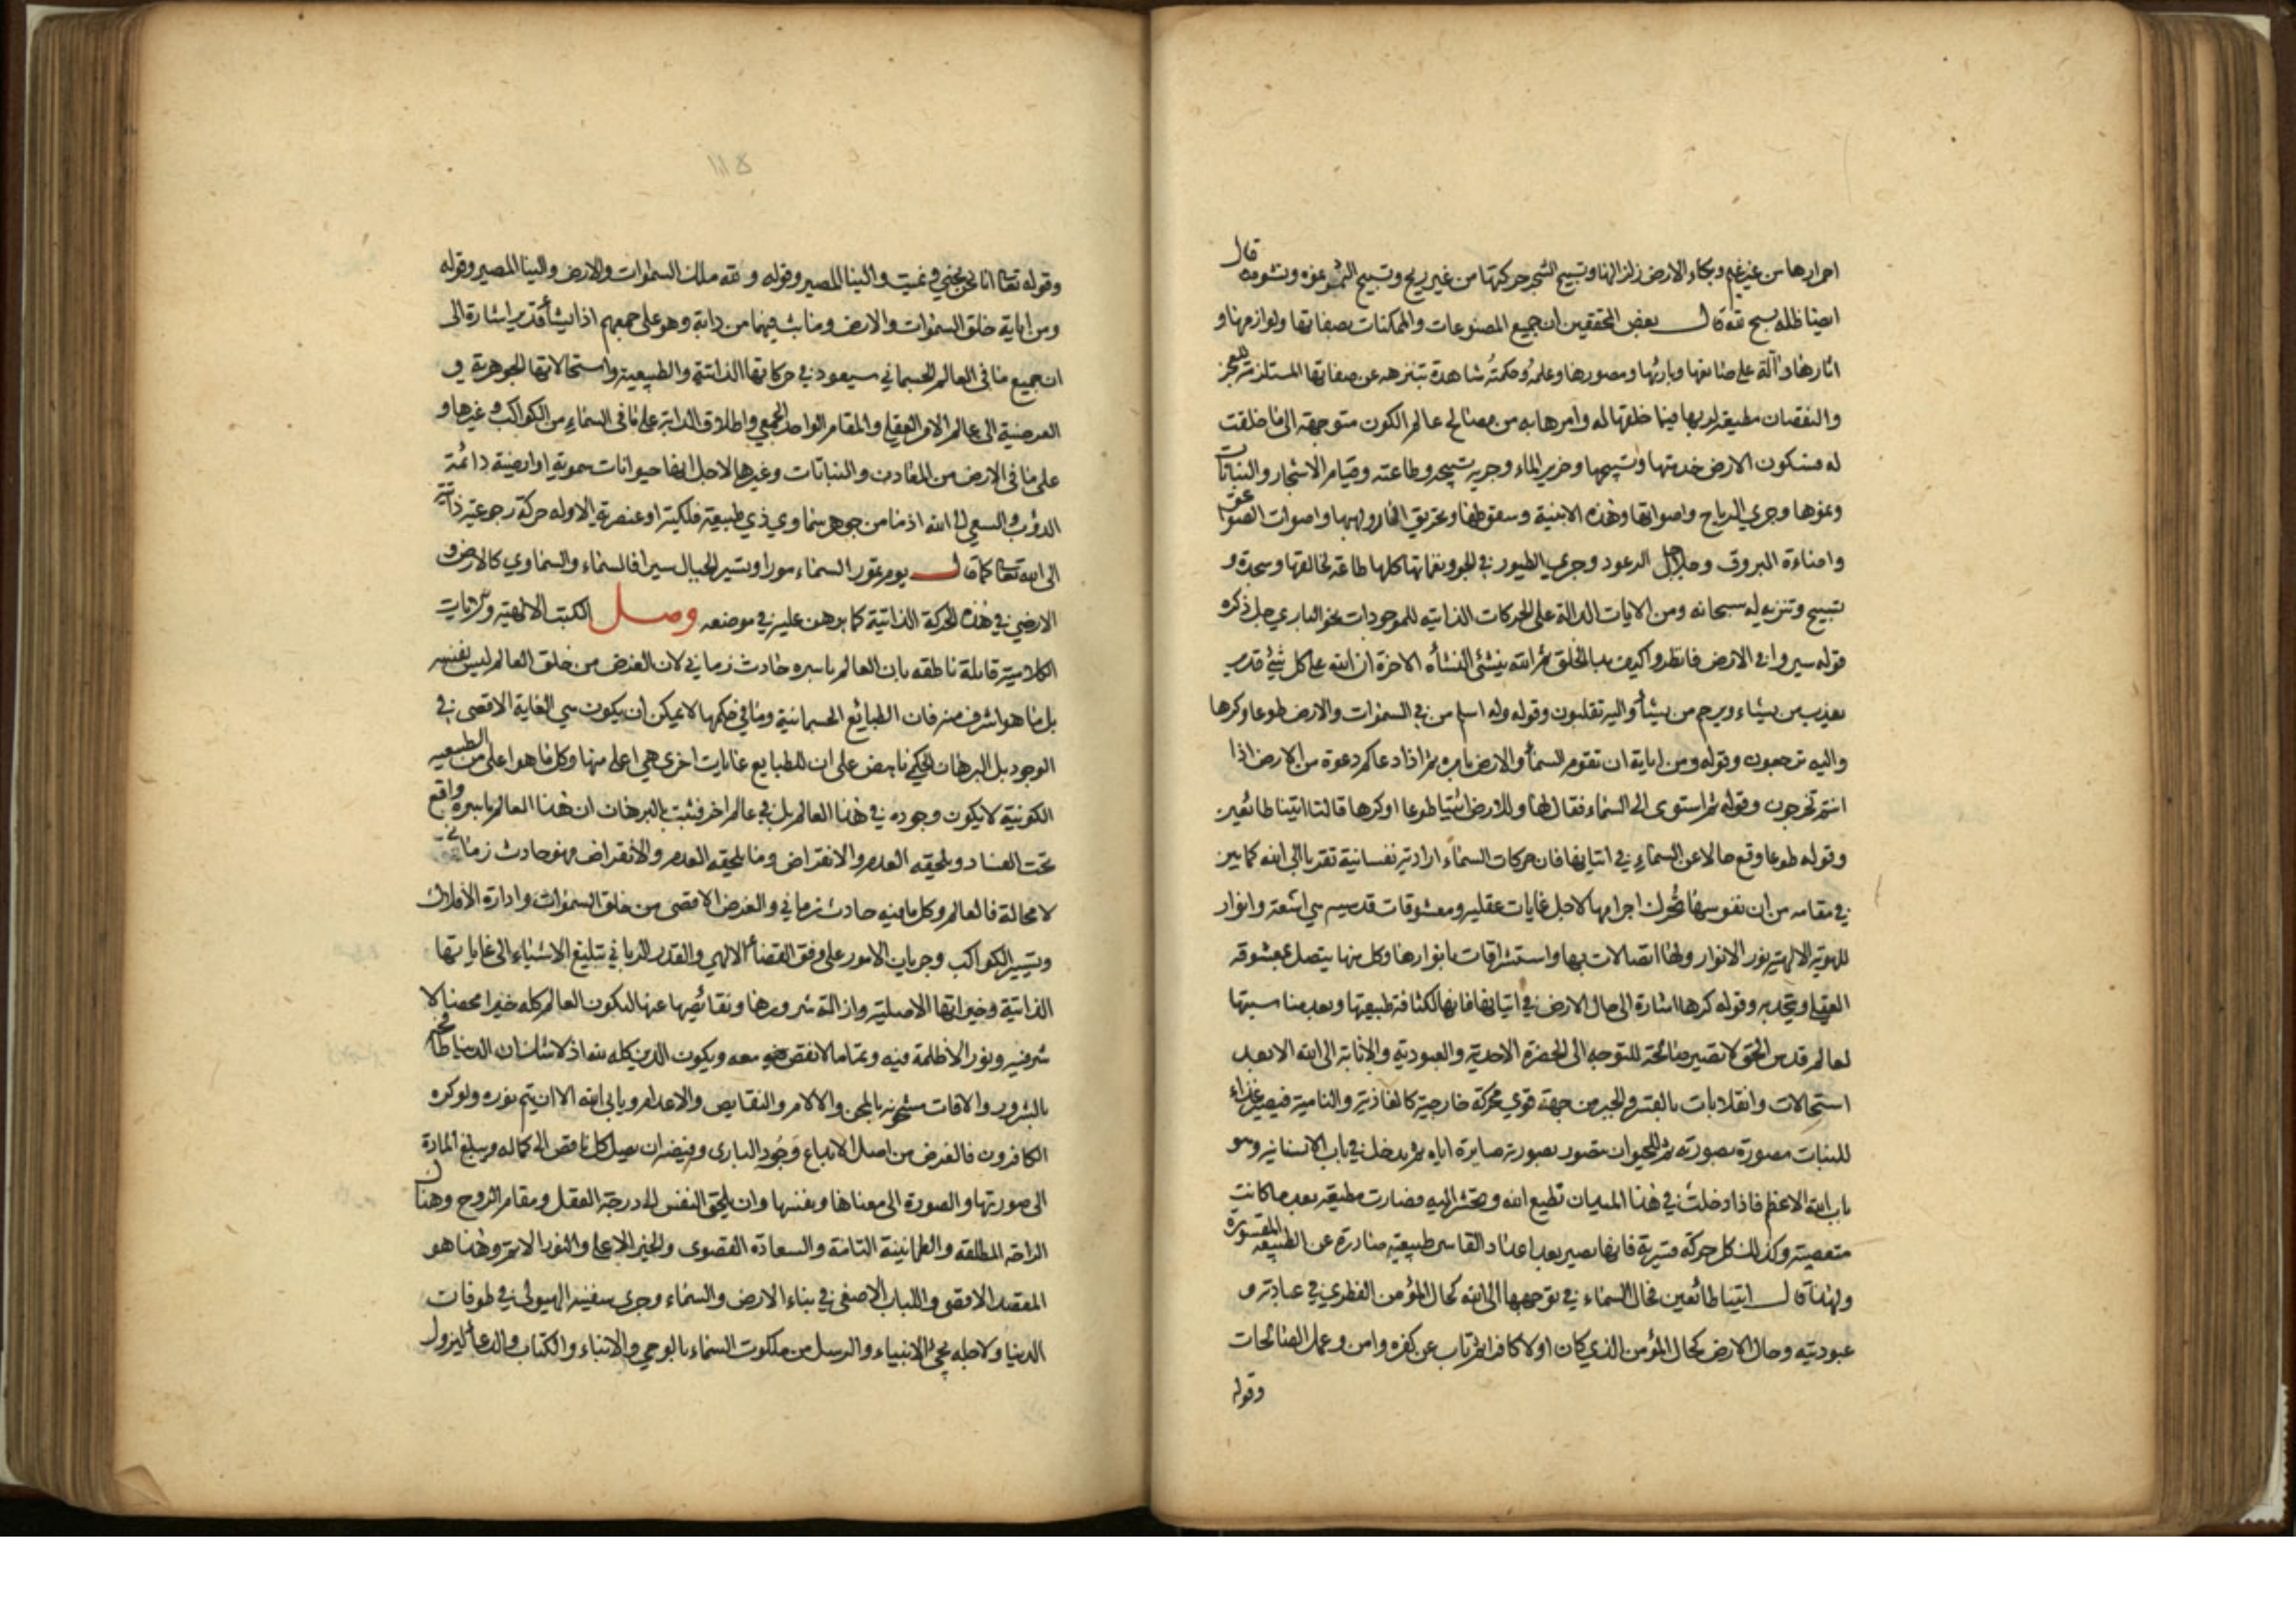 احمرارها من غير غيم وبكاء الارض زلزالهنا وتسبيح الشجر حركتها من غير ريح وتسبيح الشئ نموه ونشوه قال
ايضا ظله يسبح لله قال بعض المحققين ان جميع المصنوعات والممكنات بصفاتها ولوازمها و
اثارها دالة على صانعها وبارئها ومصورها وعلمه وحكمته شاهدة بتنزهه عن صفاتها المستلزمة للعجز
والنقصان مطيعة لربها فيما خلقها له وامرها به من مصالح عالم الكون متوجهة الى ما خلقت
له فسكون الارض خدمتها وتسبيحها وخرير الماء وجريه تسبيحه وطاعته وقيام الاشجار والنباتات
ونموها وجري الرياح واصواتها وهذه الابنية وسقوطها وتحريق النار ولهبها واصوات الصواعق
واضاءة البروق وجلاجل الرعود وجري الطيور في الجو ونغماتها كلها طاعة لخالقها وسجدة و
تسبيح وتنزيه له سبحانه ومن الايات الدالة على الحركات الذاتيه للموجودات نحو الباري جل ذكره
قوله سيروا في الارض فانظروا كيف بدا الخلق ثم الله ينشئ النشأة الاخرة ان الله على كل شئ قدير
يعذب من يشاء ويرحم من يشأ واليه تقلبون وقوله وله اسلم من في السموات والارض طوعا وكرها
واليه ترجعون وقوله ومن اياته ان تقوم السمأ والارض بامره ثم اذا دعاكم دعوة من الارض اذا
انتم تخرجون وقوله ثم استوى الى السماء فقال لها وللارض ائتيا طوعا اوكرها قالتا اتينا طائعين
وقوله طوعا وقع حالا عن السماء في اتيانها فان حركات السماء ارادية نفسانية تقربا الى الله كما بين
في مقامه من ان نفوسها تحرك اجرامها لاجل غايات عقليه ومعشوقات قدسيه هي اشعة وانوار
للهوية الالهية نور الانوار ولها اتصالات بها واستشراقات بانوارها وكل منها يتصل بمعشوقه
العقلي ويتحد به وقوله كرها اشارة الى حال الارض في اتيانها فانها لكثافة طبيعتها وبعد مناسبتها
لعالم قدس الحق لا تصير صالحة للتوجه الى الحضرة الاحدية والعبودية والانابة الى الله الا بعد
استحالات وانقلابات بالقسر والجبر من جهة قوي محركة خارجية كالغاذية والنامية فيصير غذاء
للنبات مصورة بصورته ثم للحيوان متصور بصورته صايرة اياه ثم يدخل في باب الانسانيه وهو
باب الله الاعظم فاذا دخلت في هذا الميدان تطيع الله وتحشر اليه وصارت مطيعة بعد ما كانت
متعصية وكذلك كل حركة قسرية فانها يصير بعد اعداد القاسر طبيعية صادرة عن الطبيعة المقسورة
ولهذا قال اتينا طائعين فحال السماء في توجهها الى الله كحال المؤمن الفطري في عبادته و
عبوديته وحال الارض كحال المؤمن الذي كان اولا كافرا ثم تاب عن كفره وامن وعمل الصالحات
وقوله
وقوله تعا انا نحن نحيي ونميت والينا المصير وقوله ولله ملك السموات والارض والينا المصير وقوله
ومن اياته خلق السموات والارض وما بث فيهما من دابة وهو على جمعهم اذا يشأ قدير اشارة الى
ان جميع ما في العالم الجسماني سيعود في حركاتها الذاتية والطبيعية واستحالاتها الجوهرية و
العرضية الى عالم الامر العقلي والمقام الواحد الجمعي واطلاق الدابة على ما في السماء من الكواكب وغيرها و
على ما في الارض من المعادن والنباتات وغيرها لاجل انها حيوانات سموية او ارضية دائمة
الدؤب والسعي الى الله اذ ما من جوهر سماوي ذي طبيعة فلكية او عنصرية الا وله حركة رجوعية ذاتية
الى الله تعا كما قال يوم تمور السماء مورا وتسير الجبال سيرا فالسماء والسماوي كالارض و
الارضي في هذه الحركة الذاتية كما برهن عليه في موضعه وصل الكتب الالهية والايات
الكلامية قائلة ناطقه بان العالم باسره حادث زماني لان الغرض من خلق العالم ليس نفسه
بل ما هو اشرف منه فان الطبائع الجسمانية وما في حكمها لا يمكن ان يكون هي الغاية الاقصى في
الوجود بل البرهان الحكمي ناهض على ان للطبايع غايات اخرى هي اعلى منها وكل ما هو اعلى من الطبيعيه
الكونية لا يكون وجوده في هذا العالم بل في عالم اخر فثبت بالبرهان ان هذا العالم باسره واقع
تحت الفساد ويلحقه العدم والانقراض وما يلحقه العدم والانقراض فهو حادث زماني
لا محالة فالعالم وكل ما فيه حادث زماني والغرض الاقصى من خلق السموات وادارة الافلاك
وتسيير الكواكب وجريان الامور على وفق القضأ الالهي والقدر الرباني تبليغ الاشياء الى غاياتها
الذاتية وخيراتها الاصلية وازالة شرورها ونقائصها عنها ليكون العالم كله خيرا محضا لا
شر فيه ونورا لا ظلمة فيه وتماما لا نقص معه ويكون الدين كله لله اذ لا شك ان الدنيا طافحة
بالشرور والافات مشحونه بالمحن والالام والنقايص والاعدام ويابى الله الا ان يتم نوره ولو كره
الكافرون فالغرض من اصل الابداع وجود الباري وفيضه ان يصل كل ناقص الى كماله ويبلغ المادة
الى صورتها والصورة الى معناها ونفسها وان يلحق النفس الى درجة العقل ومقام الروح وهناك
الراحة المطلقه والطمانينة التامة والسعادة القصوى والخير الاعلى والنور الاتم وهذا هو
المقصد الاقصى واللباب الاصفى في بناء الارض والسماء وجري سفينه الهيولى في طوفان
الدنيا ولاجله مجئ الانبياء والرسل من ملكوت السماء بالوحي والانباء والكتاب والدعأ لنزول